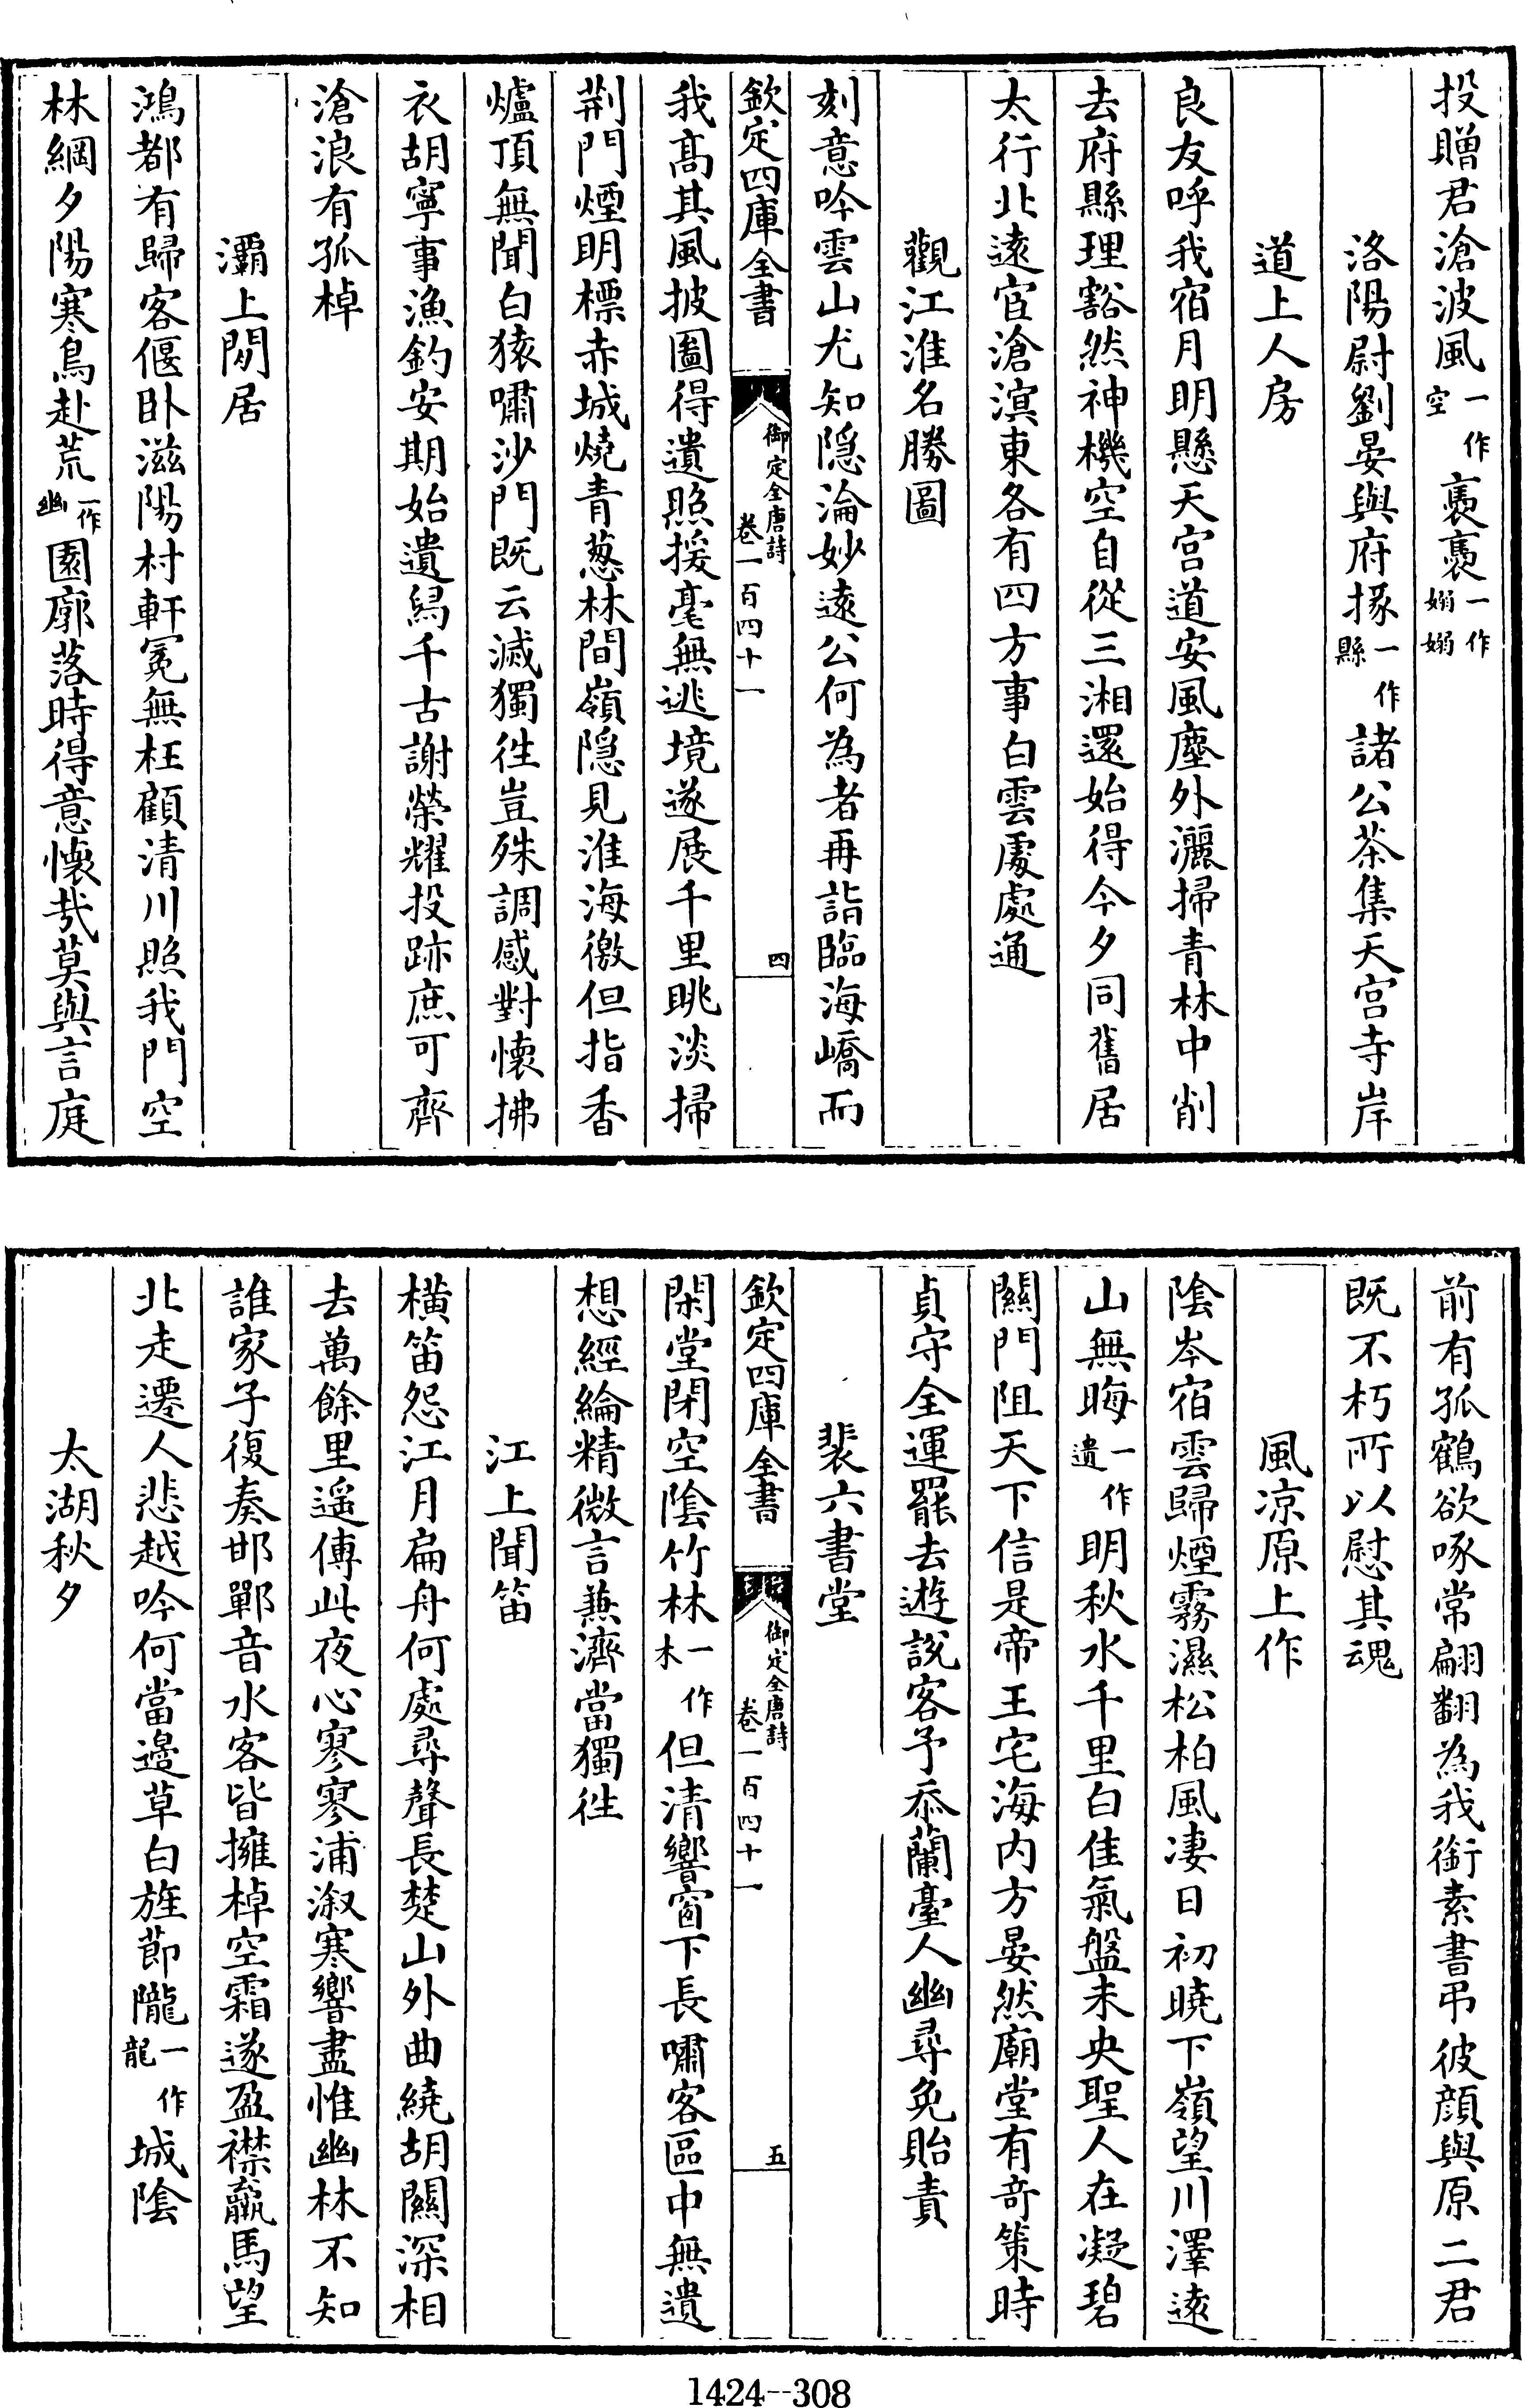 投贈君滄波風一作空褭褭一作嫋嫋
洛陽尉劉晏與府掾一作縣諸公茶集天宮寺岸
道上人房
良友呼我宿月明懸天宮道安風塵外灑掃青林中削
去府縣理豁然神機空自從三湘還始得今夕同舊居
太行北逺宦滄溟東各有四方事白雲處處通
觀江淮名勝圖
刻意吟雲山尤知隠淪妙逺公何為者再詣臨海嶠而
欽定四庫全書
御定全唐詩
卷一百四十一
四
我髙其風披圖得遺照援毫無逃境遂展千里眺淡掃
荆門煙明標赤城燒青葱林間嶺隠見淮海徼但指香
爐頂無聞白猿嘯沙門既云滅獨徃豈殊調感對懷拂
衣胡寧事漁釣安期始遺舄千古謝榮耀投跡庶可齊
滄浪有孤棹
灞上閒居
鴻都有歸客偃卧滋陽村軒冕無枉顧清川照我門空
林網夕陽寒鳥赴荒一作幽園廓落時得意懷哉莫與言庭
前有孤鶴欲啄常翩翻為我銜素書弔彼顔與原二君
既不朽所以慰其魂
風凉原上作
陰岑宿雲歸煙霧濕松柏風凄日初曉下嶺望川澤逺
山無晦一作遺明秋水千里白佳氣盤未央聖人在凝碧
闗門阻天下信是帝王宅海内方晏然廟堂有竒策時
貞守全運罷去遊說客予忝蘭臺人幽尋免貽責
裴六書堂
欽定四庫全書
御定全唐詩
卷一百四十一
五
閑堂閉空陰竹林一作木但清響窗下長嘯客區中無遺
想經綸精微言兼濟當獨徃
江上聞笛
横笛怨江月扁舟何處尋聲長楚山外曲繞胡闗深相
去萬餘里遥傳此夜心寥寥浦溆寒響盡惟幽林不知
誰家子復奏邯鄲音水客皆擁棹空霜遂盈襟羸馬望
北走遷人悲越吟何當邉草白旌節隴一作龍城陰
太湖秋夕
1424--308